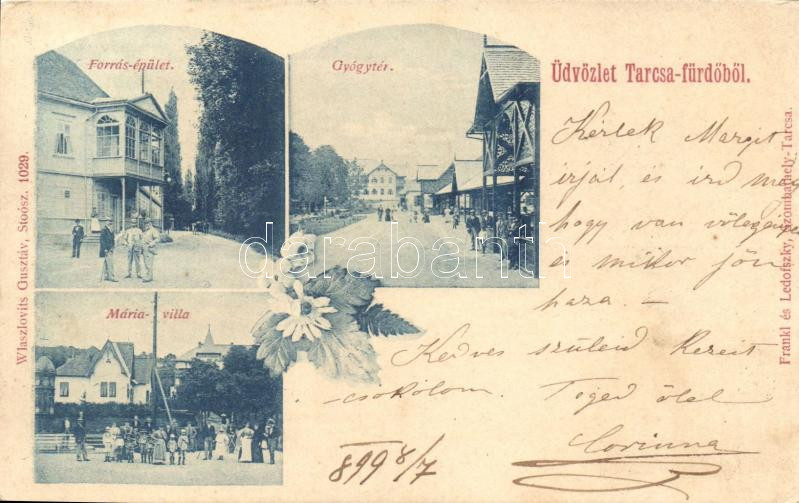 Forrás-épület.
Gyógytér.
Üdvözlet Tarcsa-fürdőből.
Kérlek Margit
írjál, és írd meg
hogy van vőlegényed
és mikor jön
haza. —
Kedves szüleid kezeit
csókolom. Téged ölel
Corinna
899 8/7
Mária-villa
Wlaszlovits Gusztáv, Stoósz. 1029.
Frankl és Ledofszky, Szombathely-Tarcsa.
darabanth